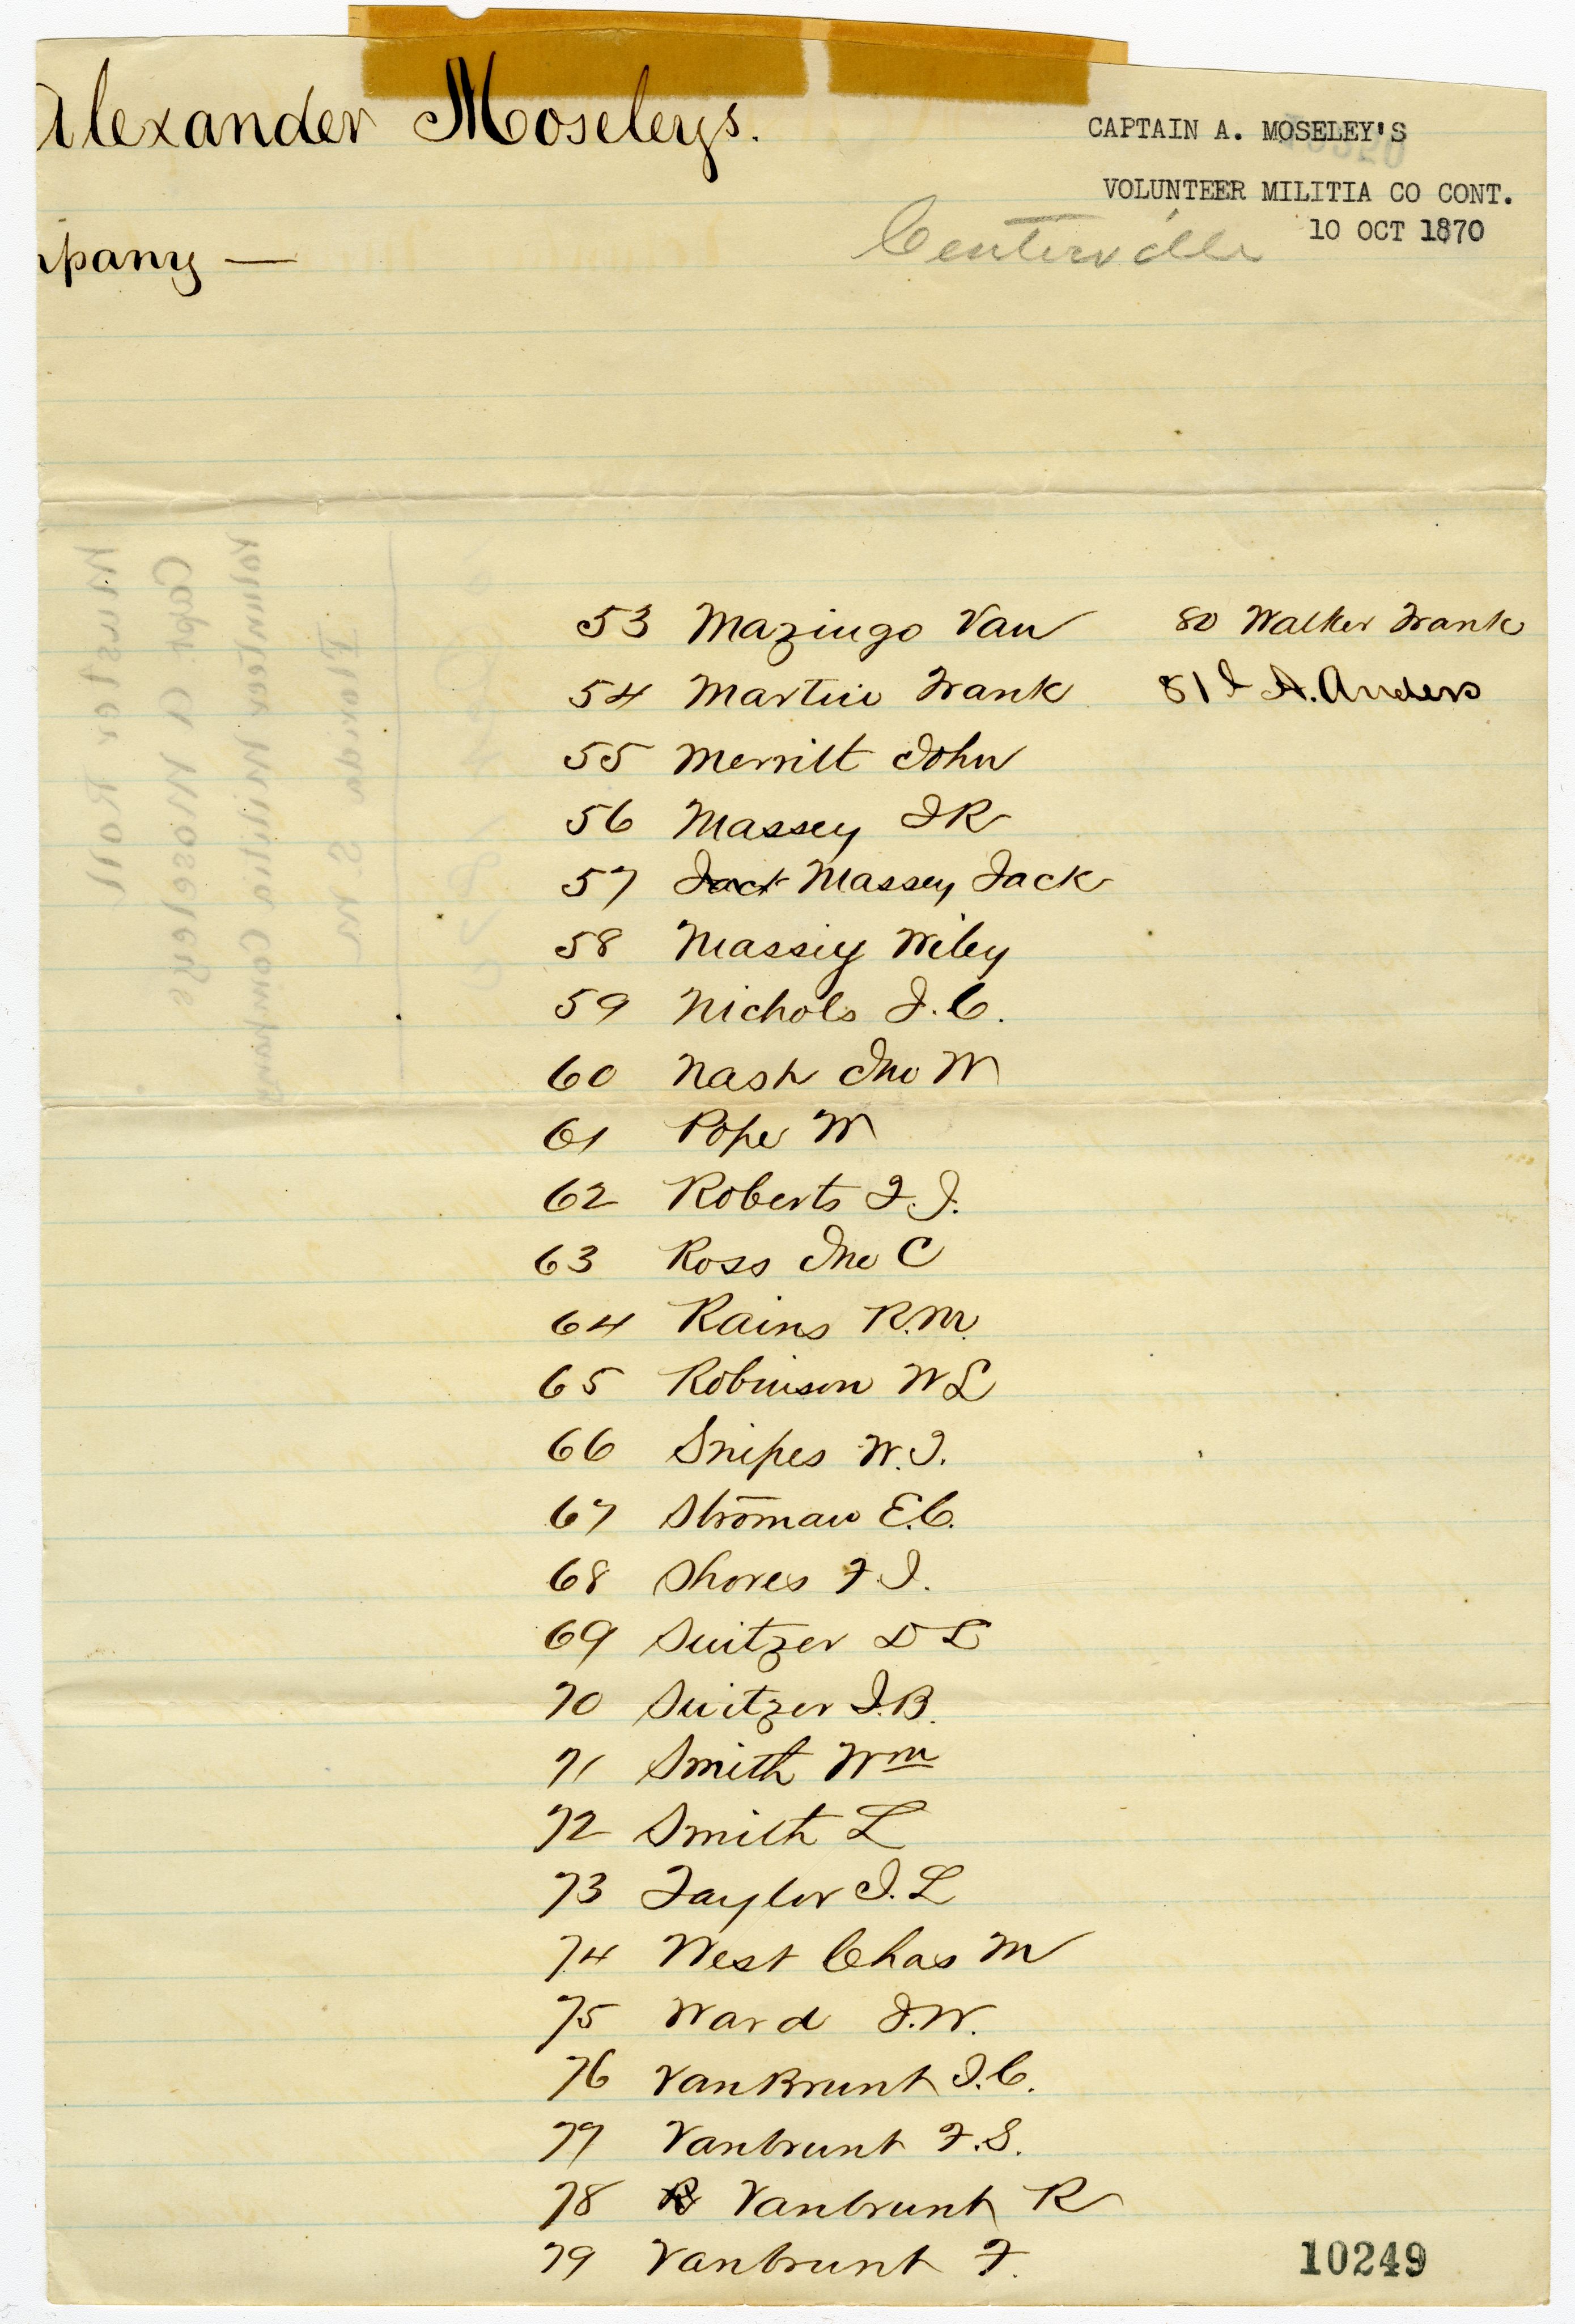 Alexander Moseleys.
CAPTAIN A. MOSELEY'S
VOLUNTEER MILITIA CO CONT.
10 OCT 1870
Centerville
mpany —
53 Mazingo Van
54 Martin Frank
55 Merritt John
56 Massey J R
57 Jack Massey Jack
58 Massiy Wiley
59 Nichols J. C.
60 Nash Jno W
61 Pope W
62 Roberts F. J.
63 Ross Jno C
64 Rains R. M.
65 Robinson W L
66 Snipes W. J.
67 Stroman E. C.
68 Shores F. J.
69 Suitzer D L
70 Suitzer J. B.
71 Smith Wm
72 Smith L
73 Taylor J. L
74 West Chas M
75 Ward J. W.
76 VanBrunt J. C.
77 Vanbrunt F. S.
78 R Vanbrunt R
79 Vanbrunt F.
80 Walker Frank
81 J A. Anders
Muster Roll
Capt A Moseleys
Volunteer Militia Company
Florida S. M
10249